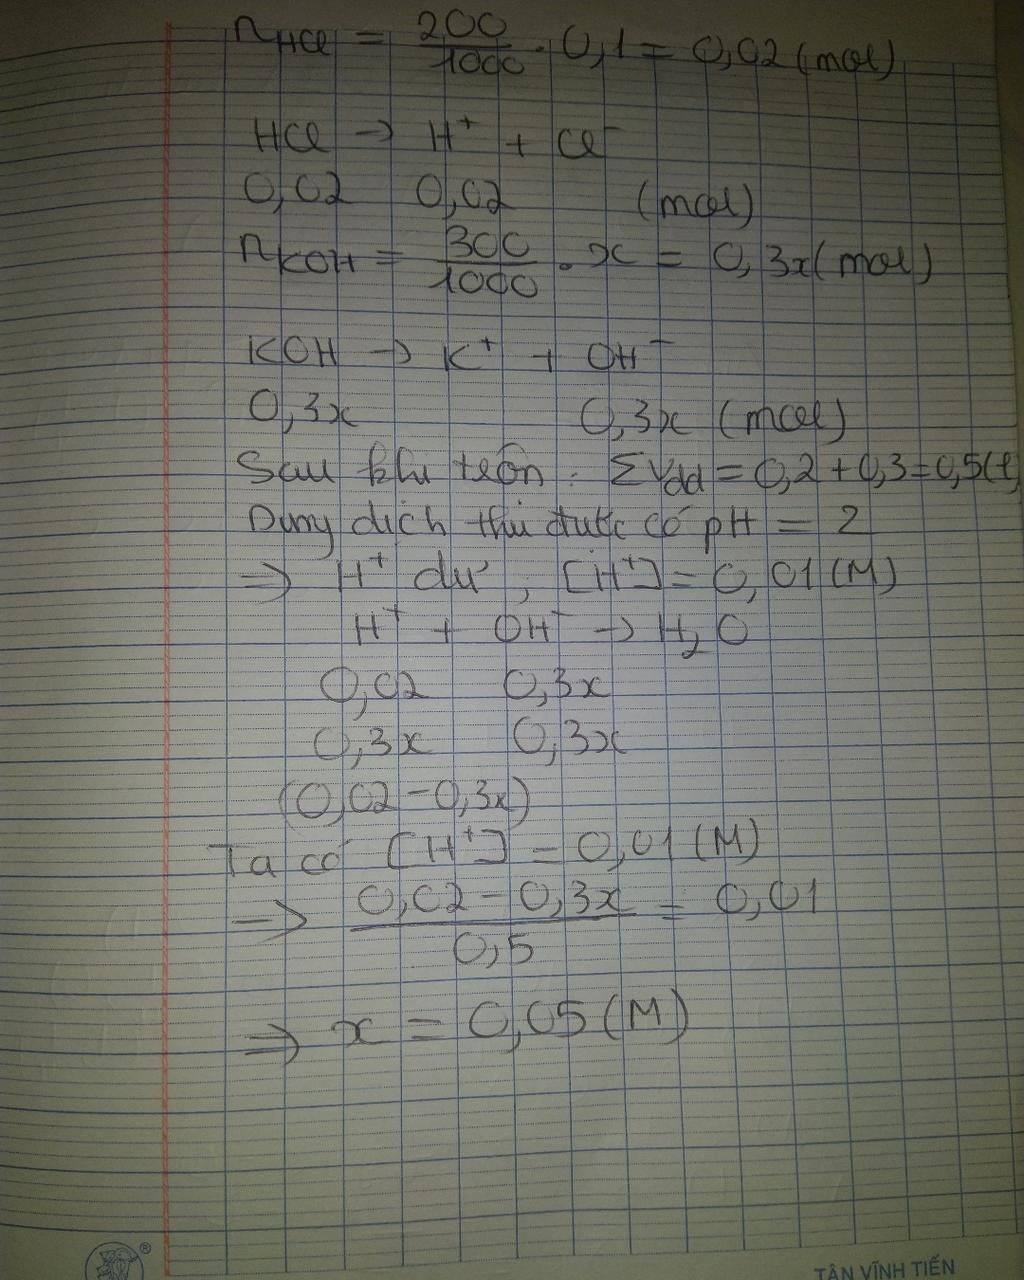 nHCl = 200/1000 . 0,1 = 0,02 (mol)
HCl → H⁺ + Cl⁻
0,02 0,02 (mol)
nKOH = 300/1000 . x = 0,3x (mol)
KOH → K⁺ + OH⁻
0,3x 0,3x (mol)
Sau khi trộn : ΣVdd = 0,2 + 0,3 = 0,5(l
Dung dịch thu được có pH = 2
⇒ H⁺ dư , [H⁺] = 0,01 (M)
H⁺ + OH⁻ → H₂O
0,02 0,3x
0,3x 0,3x
(0,02 - 0,3x)
Ta có [H⁺] = 0,01 (M)
⇒ 0,02 - 0,3x / 0,5 = 0,01
⇒ x = 0,05 (M)
®
TÂN VĨNH TIẾN